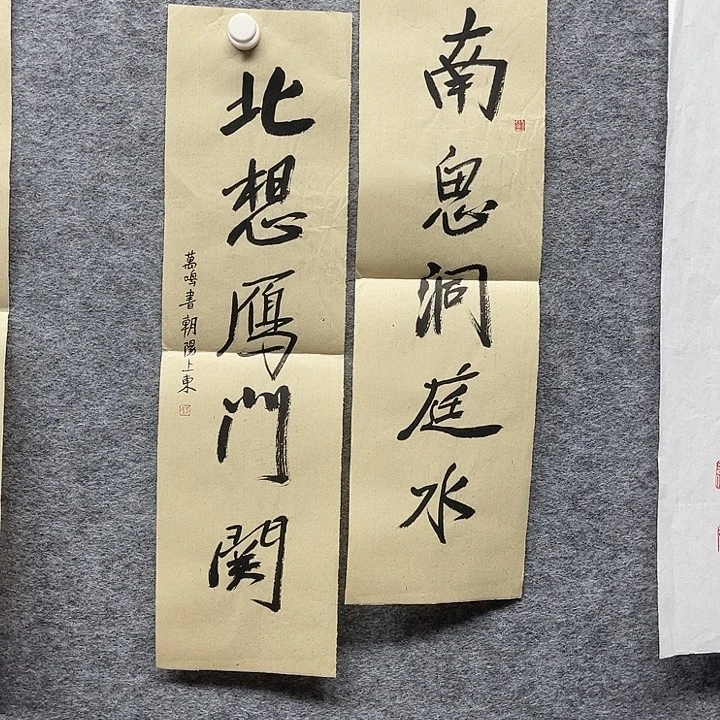 南息洞庭水
北想雁門関
萬鸣書朝陽上東